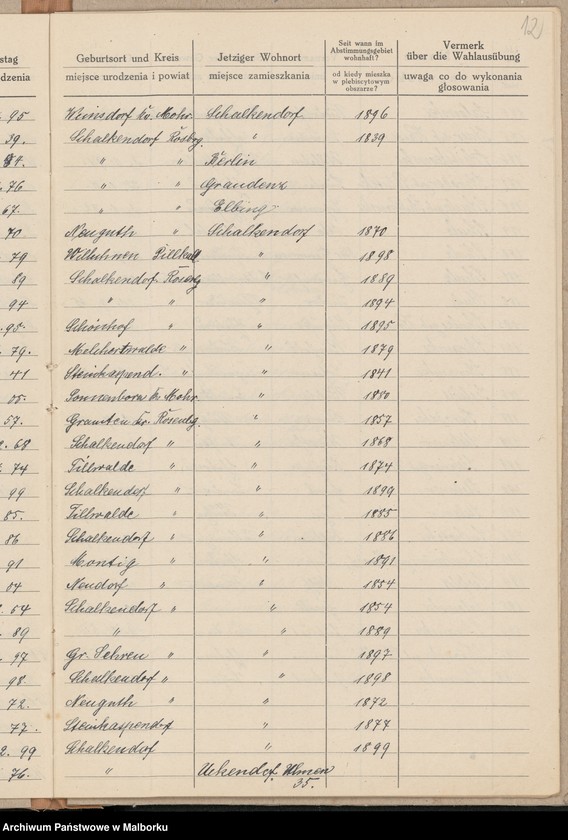 12
stag
dzenia
Geburtsort und Kreis
miejsce urodzenia i powiat
Jetziger Wohnort
miejsce zamieszkania
Seit wann im
Abstimmungsgebiet
wohnhaft?
od kiedy mieszka
w plebiscytowym
obszarze?
Vermerk
über die Wahlausübung
uwaga co do wykonania
głosowania
95 Weinsdorf Kr. Mohr. Schalkendorf 1896
39. Schalkendorf Rosbg. " 1839
94. " " Berlin
76 " " Graudenz
67. " " Elbing
70 Neuguth " Schalkendorf 1870
79 Pillkall " 1898
89 Schalkendorf Rosenbg " 1889
94 " " " 1894
95. Schönhof " " 1895
79. Melchertwalde " " 1879
41 " " 1841
05. Sonnenborn Kr. Mohr. "
57. Kr. Rosenbg. " 1857
2. 68 Schalkendorf " " 1868
74 Tillwalde " " 1874
99 Schalkendorf " " 1899
85. Tillwalde " " 1885
86 Schalkendorf " " 1886
91 Montig " " 1891
04 Neudorf " " 1854
54 Schalkendorf " " 1854
89 " " 1889
97 Gr. Sehren " " 1897
98 Schalkendorf " " 1898
72. Neuguth " " 1872
77. " 1877
2. 99 Schalkendorf " 1899
76. "
35.
Archiwum Państwowe w Malborku